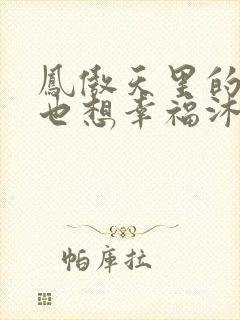 鳳傲天里的
也想幸福沐
帕庫拉